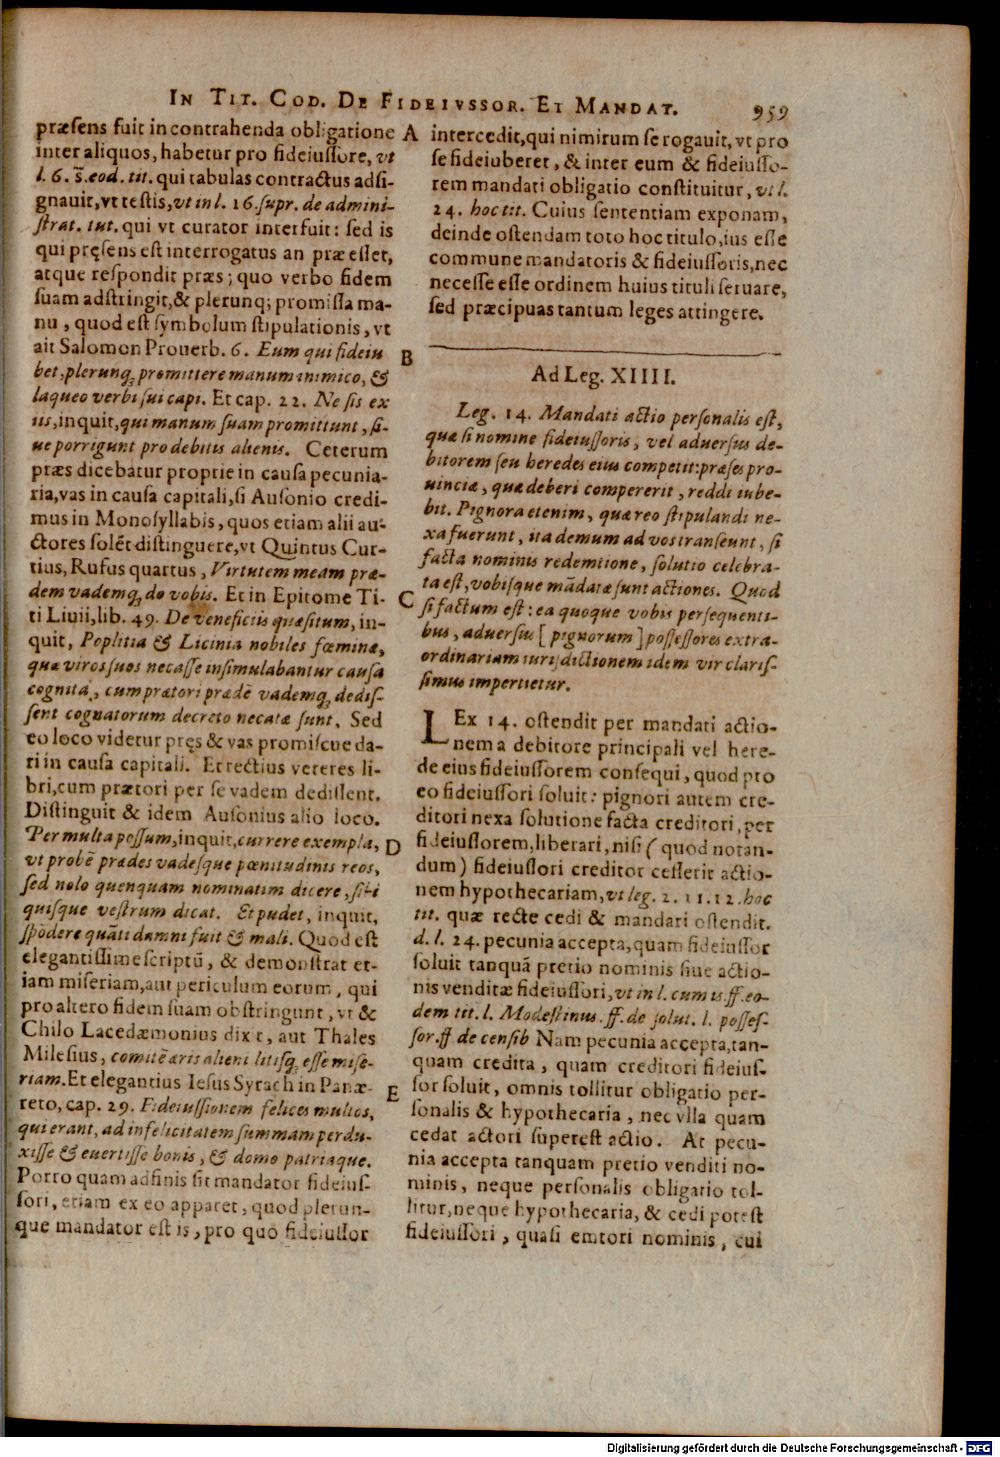 IN TIT. COD. DE FIDEIVSSOR. ET MANDAT. 959
præsens fuit in contrahenda obligatione
inter aliquos, habetur pro fideiussore, vt
l. 6. s. eod. tit. qui tabulas contractus adsi-
gnauit, vt testis, vt in l. 16. supr. de admini-
strat. tut. qui vt curator interfuit: sed is
qui pręsens est interrogatus an præ esset,
atque respondit præs; quo verbo fidem
suam adstringit, & plerunq; promissa ma-
nu, quod est symbolum stipulationis, vt
ait Salomon Prouerb. 6. Eum qui fideiu
bet, plerunq; promittere manum inimico, &
laqueo verbi sui capi. Et cap. 22. Ne sis ex
iis, inquit, qui manum suam promittunt, si-
ue porrigunt pro debitis alienis. Ceterum
præs dicebatur proprie in causa pecunia-
ria, vas in causa capitali, si Ausonio credi-
mus in Monosyllabis, quos etiam alii au-
ctores solẽt distinguere, vt Quintus Cur-
tius, Rufus quartus, Virtutem meam præ-
dem vademq; do vobis. Et in Epitome Ti-
ti Liuii, lib. 49. De veneficiis quæsitum, in-
quit, Poplitia & Licinia nobiles fœminæ,
quæ viros suos necasse insimulabantur causa
cognita, cum prætori prædẽ vademq; dedis-
sent cognatorum decreto necatæ sunt. Sed
eo loco videtur pręs & vas promiscue da-
ri in causa capitali. Et rectius veteres li-
bri, cum prætori per se vadem dedissent.
Distinguit & idem Ausonius alio loco.
Per multa possum, inquit, currere exempla,
vt probẽ prædes vadesque pœnitudinis reos,
sed nolo quenquam nominatim dicere, sibi
quisque vestrum dicat. Et pudet, inquit,
spõdere quãti damni fuit & mali. Quod est
elegantissime scriptũ, & demonstrat et-
iam miseriam, aut periculum eorum, qui
pro altero fidem suam obstringunt, vt &
Chilo Lacedæmonius dixit, aut Thales
Milesius, comitẽ æris alieni litisq; esse mise-
riam. Et elegantius Iesus Syrach in Panæ-
reto, cap. 29. Fideiussionem felices multos,
qui erant, ad infelicitatem summam perdu-
xisse & euertisse bonis, & domo patriaque.
Porro quam adfinis sit mandator fideius-
sori, etiam ex eo apparet, quod plerun-
que mandator est is, pro quo fideiussor
A
B
C
D
E
intercedit, qui nimirum se rogauit, vt pro
se fideiuberet, & inter eum & fideiusso-
rem mandati obligatio constituitur, vt l.
24. hoc tit. Cuius sententiam exponam,
deinde ostendam toto hoc titulo, ius esse
commune mandatoris & fideiussoris, nec
necesse esse ordinem huius tituli seruare,
sed præcipuas tantum leges attingere.
Ad Leg. XIIII.
Leg. 14. Mandati actio personalis est,
quæ si nomine fideiussoris, vel aduersus de-
bitorem seu heredes eius competit: præses pro-
uinciæ, quæ deberi compererit, reddi iube-
bit. Pignora etenim, quæ reo stipulandi ne-
xa fuerunt, ita demum ad vos transeunt, si
facta nominis redemtione, solutio celebra-
ta est, vobisque mãdatæ sunt actiones. Quod
si factum est: ea quoque vobis persequenti-
bus, aduersus [pignorum] possessores extra-
ordinariam iurisdictionem idem vir claris-
simus impertietur.
LEx 14. ostendit per mandati actio-
nem a debitore principali vel here-
de eius fideiussorem consequi, quod pro
eo fideiussori soluit: pignori autem cre-
ditori nexa solutione facta creditori, per
fideiussorem, liberari, nisi (quod notan-
dum) fideiussori creditor cesserit actio-
nem hypothecariam, vt leg. 2. 11. 12. hoc
tit. quæ recte cedi & mandari ostendit.
d. l. 24. pecunia accepta, quam fideiussor
soluit tanquã pretio nominis siue actio-
nis venditæ fideiussori, vt in l. cum is. ff. eo-
dem tit. l. Modestinus. ff. de solut. l. posses-
sor. ff. de censib Nam pecunia accepta, tan-
quam credita, quam creditori fideius-
sor soluit, omnis tollitur obligatio per-
sonalis & hypothecaria, nec vlla quam
cedat actori superest actio. At pecu-
nia accepta tanquam pretio venditi no-
minis, neque personalis obligatio tol-
litur, neque hypothecaria, & cedi potest
fideiussori, quasi emtori nominis, cui
Digitalisierung gefördert durch die Deutsche Forschungsgemeinschaft - DFG